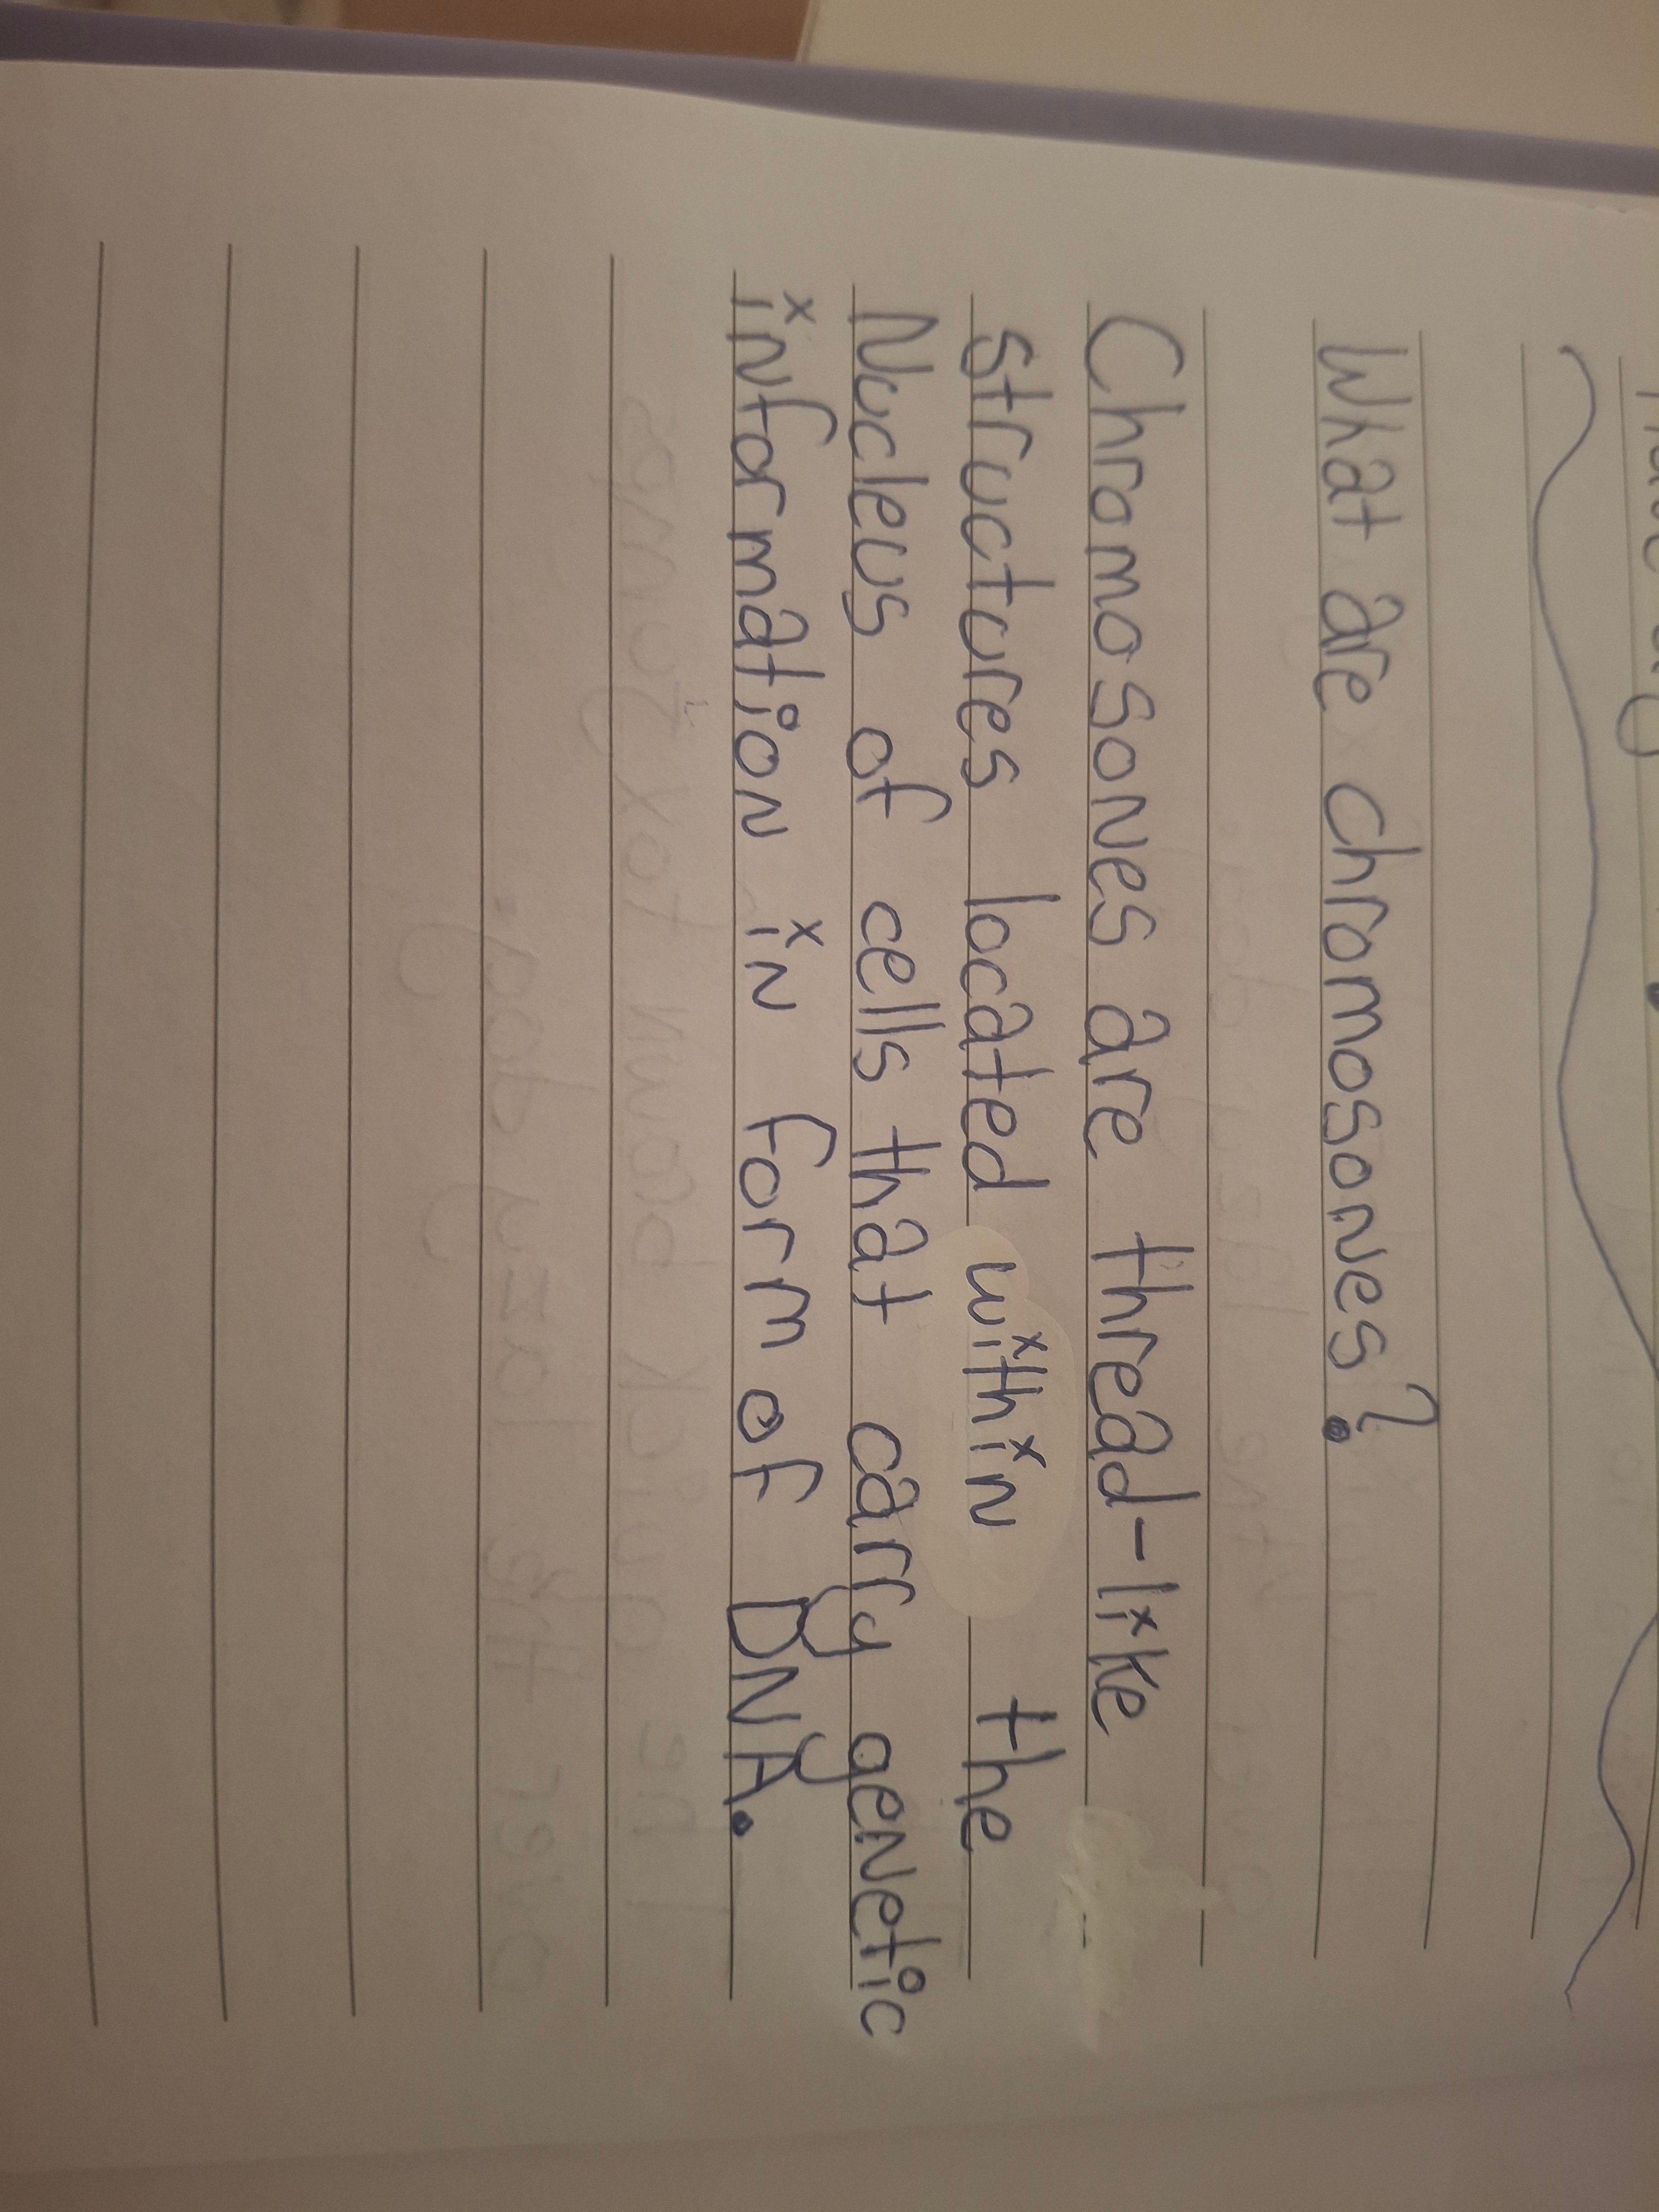 What are chromosones?
Chromosones are thread-like
structures located within the
Nucleus of cells that carry genetic
information in form of DNA.